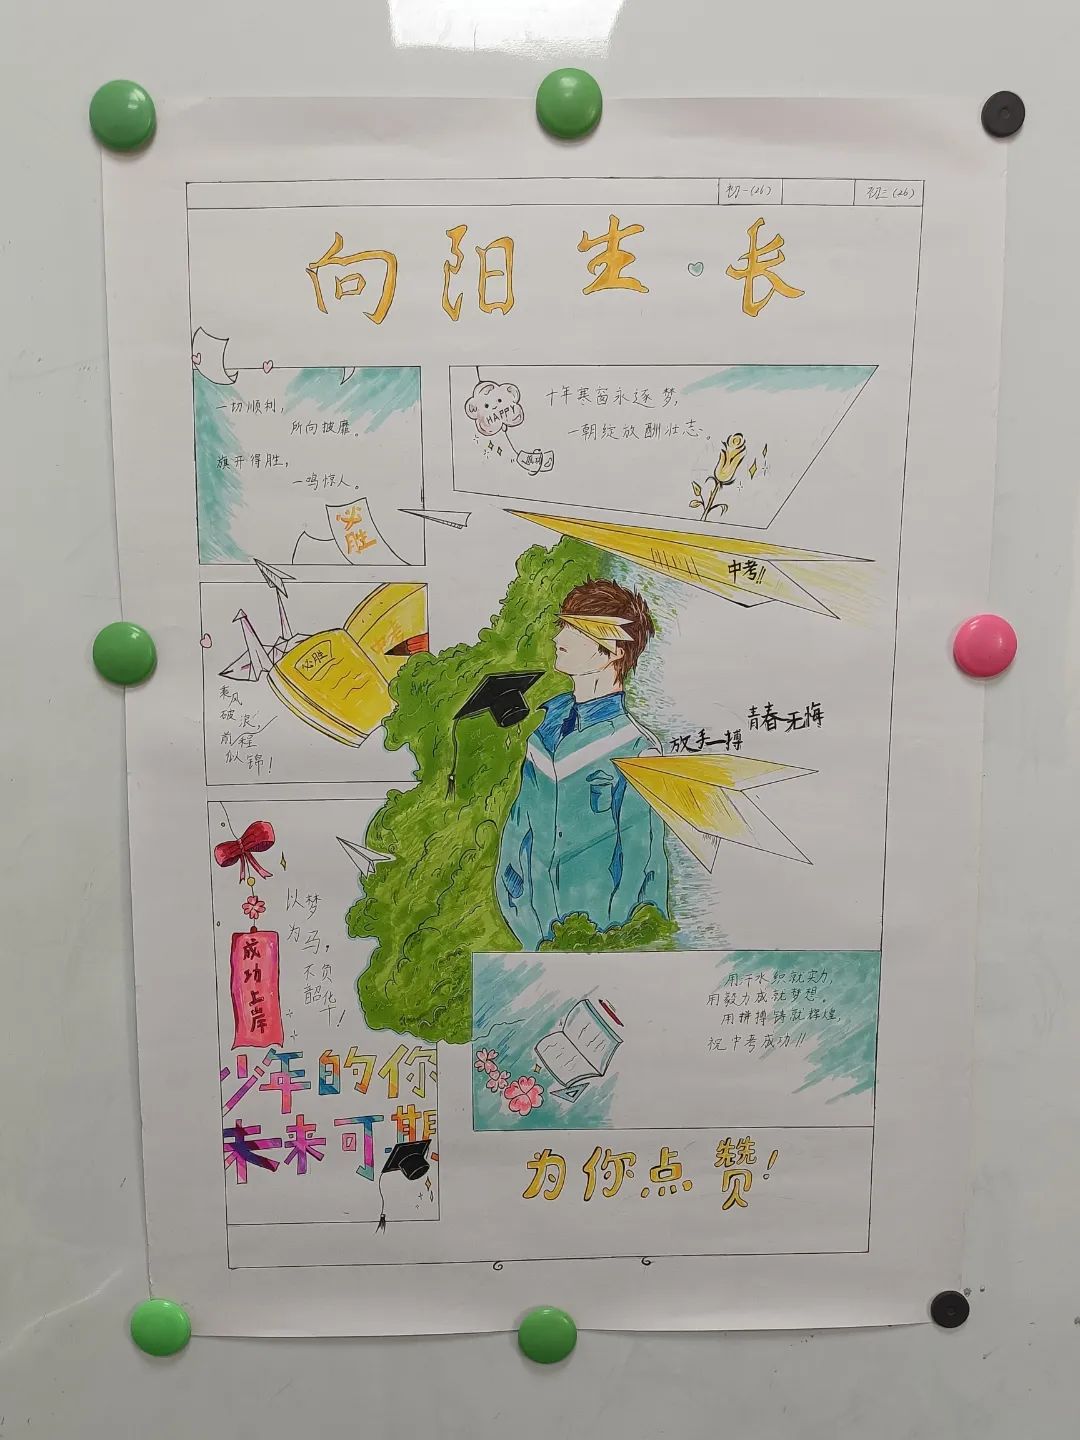 初一(26)
初三(26)
向阳生长
一切顺利，
所向披靡。
旗开得胜，
一鸣惊人。
必胜
HAPPY
十年寒窗永逐梦，
一朝绽放酬壮志。
中考!!
中考
必胜
乘风
破浪，
前程
似锦！
青春无悔
放手一搏
成功上岸
以梦
为马，
不负
韶华！
少年的你
未来可期
用汗水织就实力，
用毅力成就梦想。
用拼搏铸就辉煌，
祝中考成功!!
为你点赞！